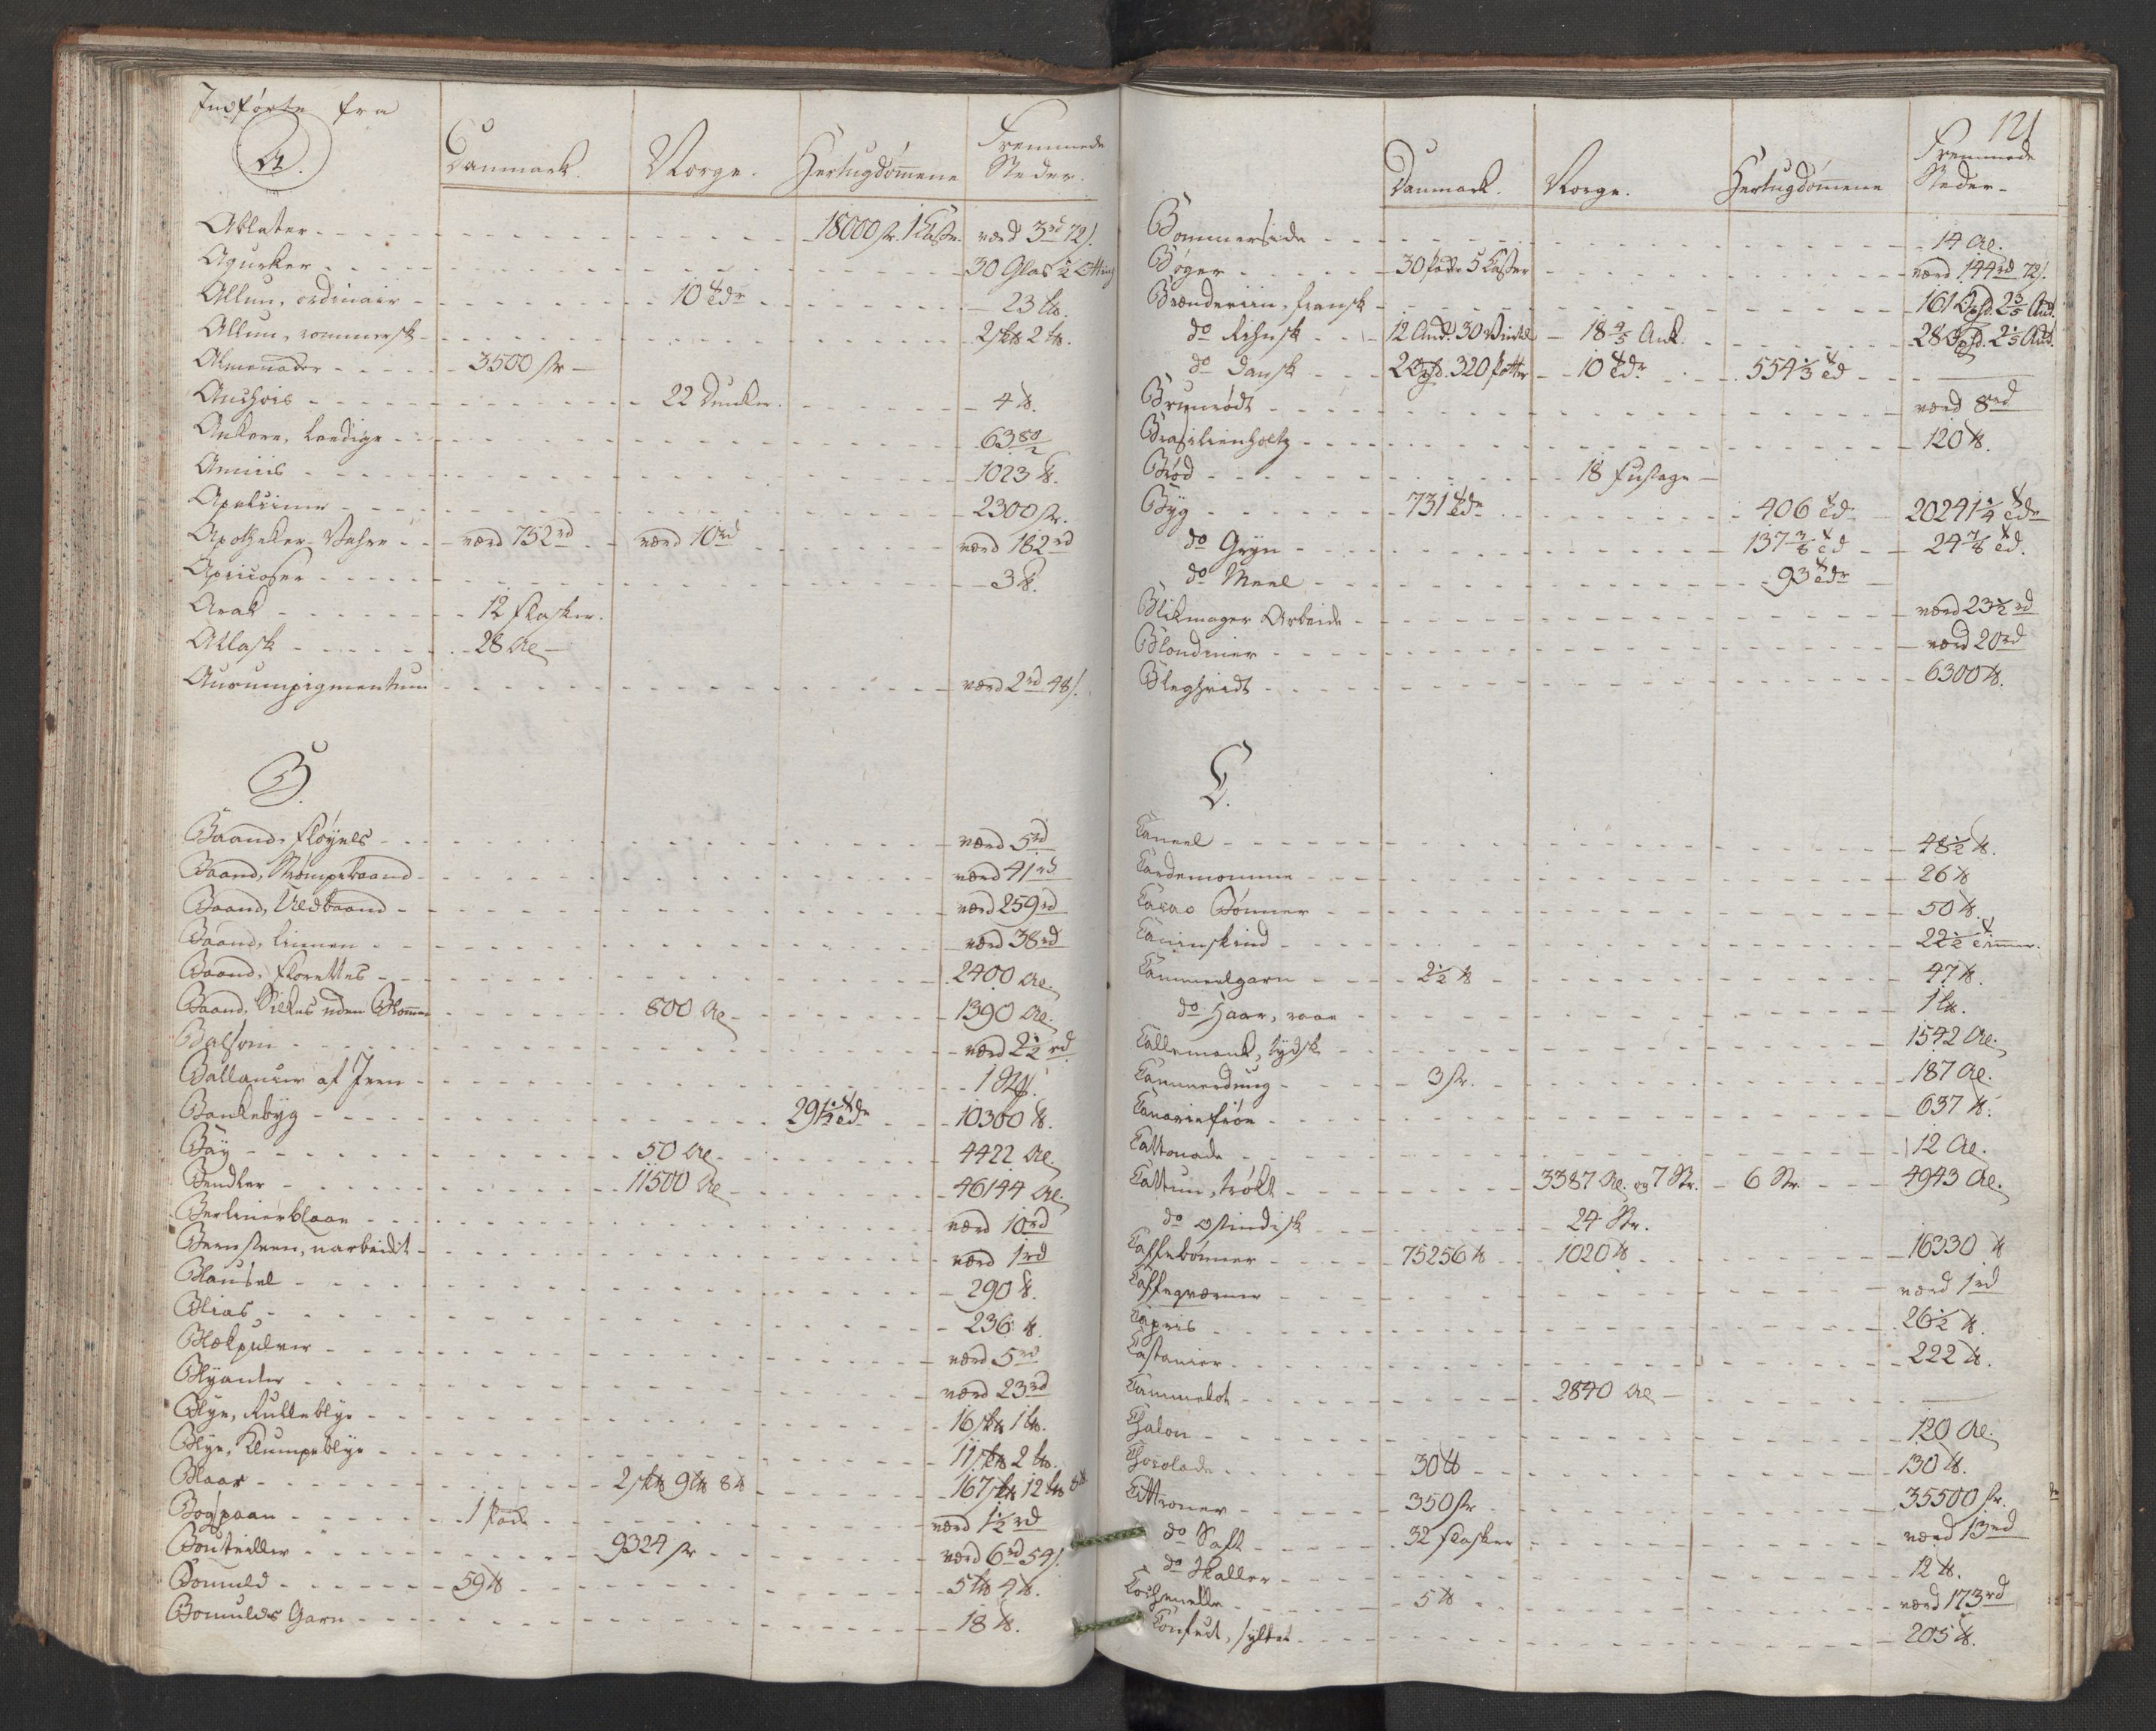 Indførte fra
A.
Danmark. Norge. Hertugdømmene Fremmede Steder.
Ablater - 18000 st. 1 Kaste. værd 3rd 72s.
Agurker - 30 Glas ½ Otting
Allun, ordinair - 10 Tdr - 23 L℔.
Allun, rommersk - 2 sk℔ 2 L℔.
Almonader - 3500 st -
Anchovis - 22 Dunker. - 4 ℔.
Ankere, Leedige - 63
Anniis - 1023 ℔.
Apelsiner - 2300 st.
Apotheker-Vahre - værd 752rd - værd 10rd - værd 182rd
Apricoser - 3 ℔.
Arak - 12 Flasker.
Atlask - 28 Al -
Aurumpigmentum - værd 2rd 48s.
B.
Baand, Fløyels - værd 5rd
Baand, Strømpebaand - værd 41rd
Baand, Uldbaand - værd 259rd
Baand, Linnen - værd 38rd
Baand, Florettes - 2400 Al.
Baand, Silkes uden Blommer - 800 Al - 1390 Al.
Balsom - værd 2½ rd
Ballancer af Jern -
Bankebyg - 29½ Tdr - 10300 ℔.
Bay - 50 Al - 4422 Al.
Bendler - 11500 Al - 46144 Al.
Berlinerblaae - værd 10rd
Bernsteen, uarbeidt - værd 1rd
Blaansel - 290 ℔.
Blias - 236 ℔.
Blækpulver - værd 5rd
Blyanter - værd 23rd
Blye, Rulleblye - 16 sk℔ 1 L℔.
Blye, Klumpeblye - 11 sk℔ 2 L℔.
Blaar - 2 sk℔ 9 L℔ 8 ℔ - 167 sk℔ 12 L℔ 8 ℔
Bogspaan - 1 Pak - værd 1½ rd
Bouteiller - 9324 st - værd 6rd 54s.
Bomuld - 59 ℔ - 5 L℔ 4 ℔.
Bomulds Garn - 18 ℔.
121
Danmark. Norge. Hertugdømmene Fremmede Steder -
Bommerside - 14 Al.
Bøger - 30 Pakker 5 Kaster - værd 144rd 72s.
Brændeviin, fransk - 161 Oxhd. 2 3/5 Ank.
do Rhinsk - 12 Ank. 30 Viertel - 18 4/5 Ank. - 28 Oxhd. 2 1/5 Ank.
do Dansk - 2 Oxhd. 320 Potter - 10 Tdr - 554⅓ Td -
Brunrødt - værd 8rd
Brasilienholtz - 120 ℔.
Brød - 18 Fustage -
Byg - 731 Tdr - 406 Td - 20241¼ Tdr
do Gryn - 137⅜ Td - 24⅞ Td.
do Meel - 93 Tdr -
Blikmager Arbeide - værd 23½ rd
Blondiner - værd 20rd
Bleghvidt - 6300 ℔.
C.
Caneel - 48½ ℔.
Cardemomme - 26 ℔
Cacao Bønner - 50 ℔.
Caninskind - 22½ Timmer.
Cammeelgarn - 2½ ℔ - 47 ℔.
do Haar, raae - 1 L℔.
Callemank, tydsk - 1542 Al.
Cammerdung - 3 st. - 187 Al.
Canariefrøe - 637 ℔.
Cattonade - 12 Al.
Cattun, trøkt - 3387 Al. og 7 Str. - 6 Str - 4943 Al.
do ostindisk - 24 Str.
Caffebønner - 75256 ℔ - 1020 ℔ - 16330 ℔
Caffeqværner - værd 1rd
Capris - 26½ ℔.
Castanier - 222 ℔.
Cammelot - 2840 Al -
Chalon - 120 Al.
Chocolade - 30 ℔ - 130 ℔.
Cittroner - 350 st - 35500 st.
do Saft - 32 Flasker - værd 13rd
do Skaller - 12 ℔.
Cochenelle - 5 ℔ - værd 173rd
Confect, syltet - 205 ℔.